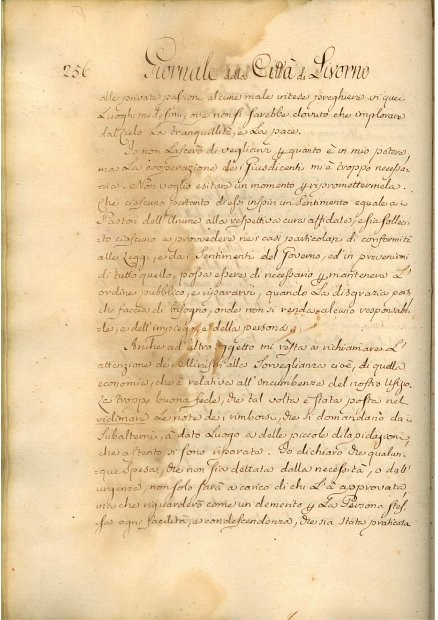 256 Giornale della Città di Livorno
alle private passioni alcune male intese preghiere in quei
Luoghi medesimi, ove non si sarebbe dovuto che implorare
dal Cielo La tranquillità, e La pace.
Io non Lascerò di vegliarvi p quanto è in mio potere,
ma La cooperazione dei Giusdicenti mi è troppo necessa
ria. Non voglio esitare un momento p ripromettermela.
Che ciascuno pertanto di essi inspiri un Sentimento eguale ai
Pastori dell'Anime alla respettiva cura affidate, e sia solleci
to ciascuno a provedere nei casi particolari di conformità
alle Leggi, e dai Sentimenti del Governo, ed in prevenirmi
di tutto quello, possa essere di necessario p mantenere L'
ordine pubblico, e ripararvi, quando La disgrazia por
che faccia di bisogno, onde non si renda alcuno responsabi
le, e dell'impiego, e della persona.
Anche ad altro oggetto mi resta a richiamare L'
attenzione dei Ministri alla Sorveglianza cioè, di quella
economia, che è relativa all'incumbenze del nostro Ufizio.
La troppo buona fede, che tal volta è stata posta nel
vidimare Le note dei rimborsi, che si domandano dai
Subalterni, a dato Luogo a delle piccole dilapidazioni,
che a stento si sono riparate. Io dichiaro che qualun
que Spesa, che non sia dettata dalla necessità, o dall'
urgenza, non solo sarà a carico di chi L'à approvata,
ma che riguarderò come un demerito p La Persona stes
sa ogni facilità, a condescendenza, che sia stata praticata